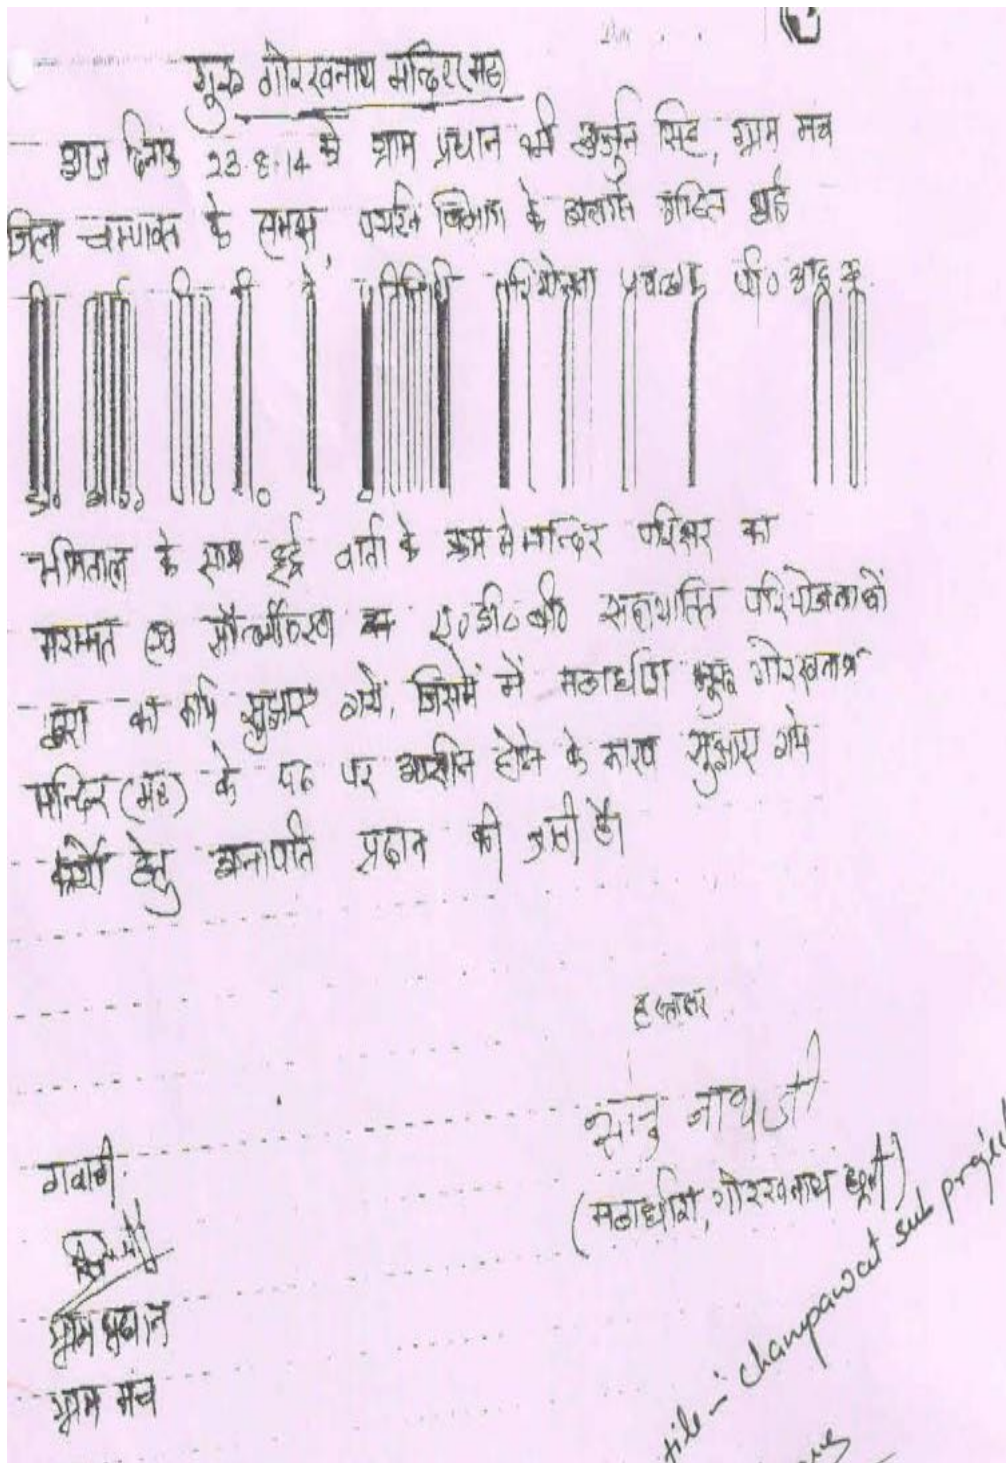 गुरू गोरखनाथ मन्दिर (मठ)
आज दिनांक 23.8.14 को ग्राम प्रधान श्री अर्जुन सिंह, ग्राम मंच
जिला चम्पावत के समक्ष, पर्यटन विभाग के अन्तर्गत गठित
परियोजना प्रबन्धक पी०आई०यू०
भीमताल के साथ हुई वार्ता के क्रम में मन्दिर परिसर का
मरम्मत एवं सौन्दर्यीकरण ए०डी०बी० सहायतित परियोजनाओं
द्वारा का कार्य सुझाए गये, जिसमें में मठाधीश गुरू गोरखनाथ
मन्दिर (मठ) के पद पर आसीन होने के कारण सुझाए गये
कार्यो हेतु अनापत्ति प्रदान की जाती है।
हस्ताक्षर
नाथ जी
गवाह
(मठाधीश, गोरखनाथ
ग्राम प्रधान
ग्राम मंच
file - champawat sub project